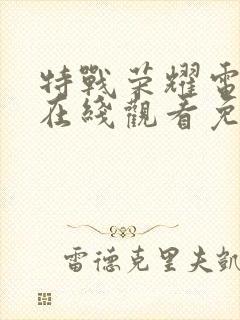 特戰荣耀電
在綫觀看免
雷德克里夫凱